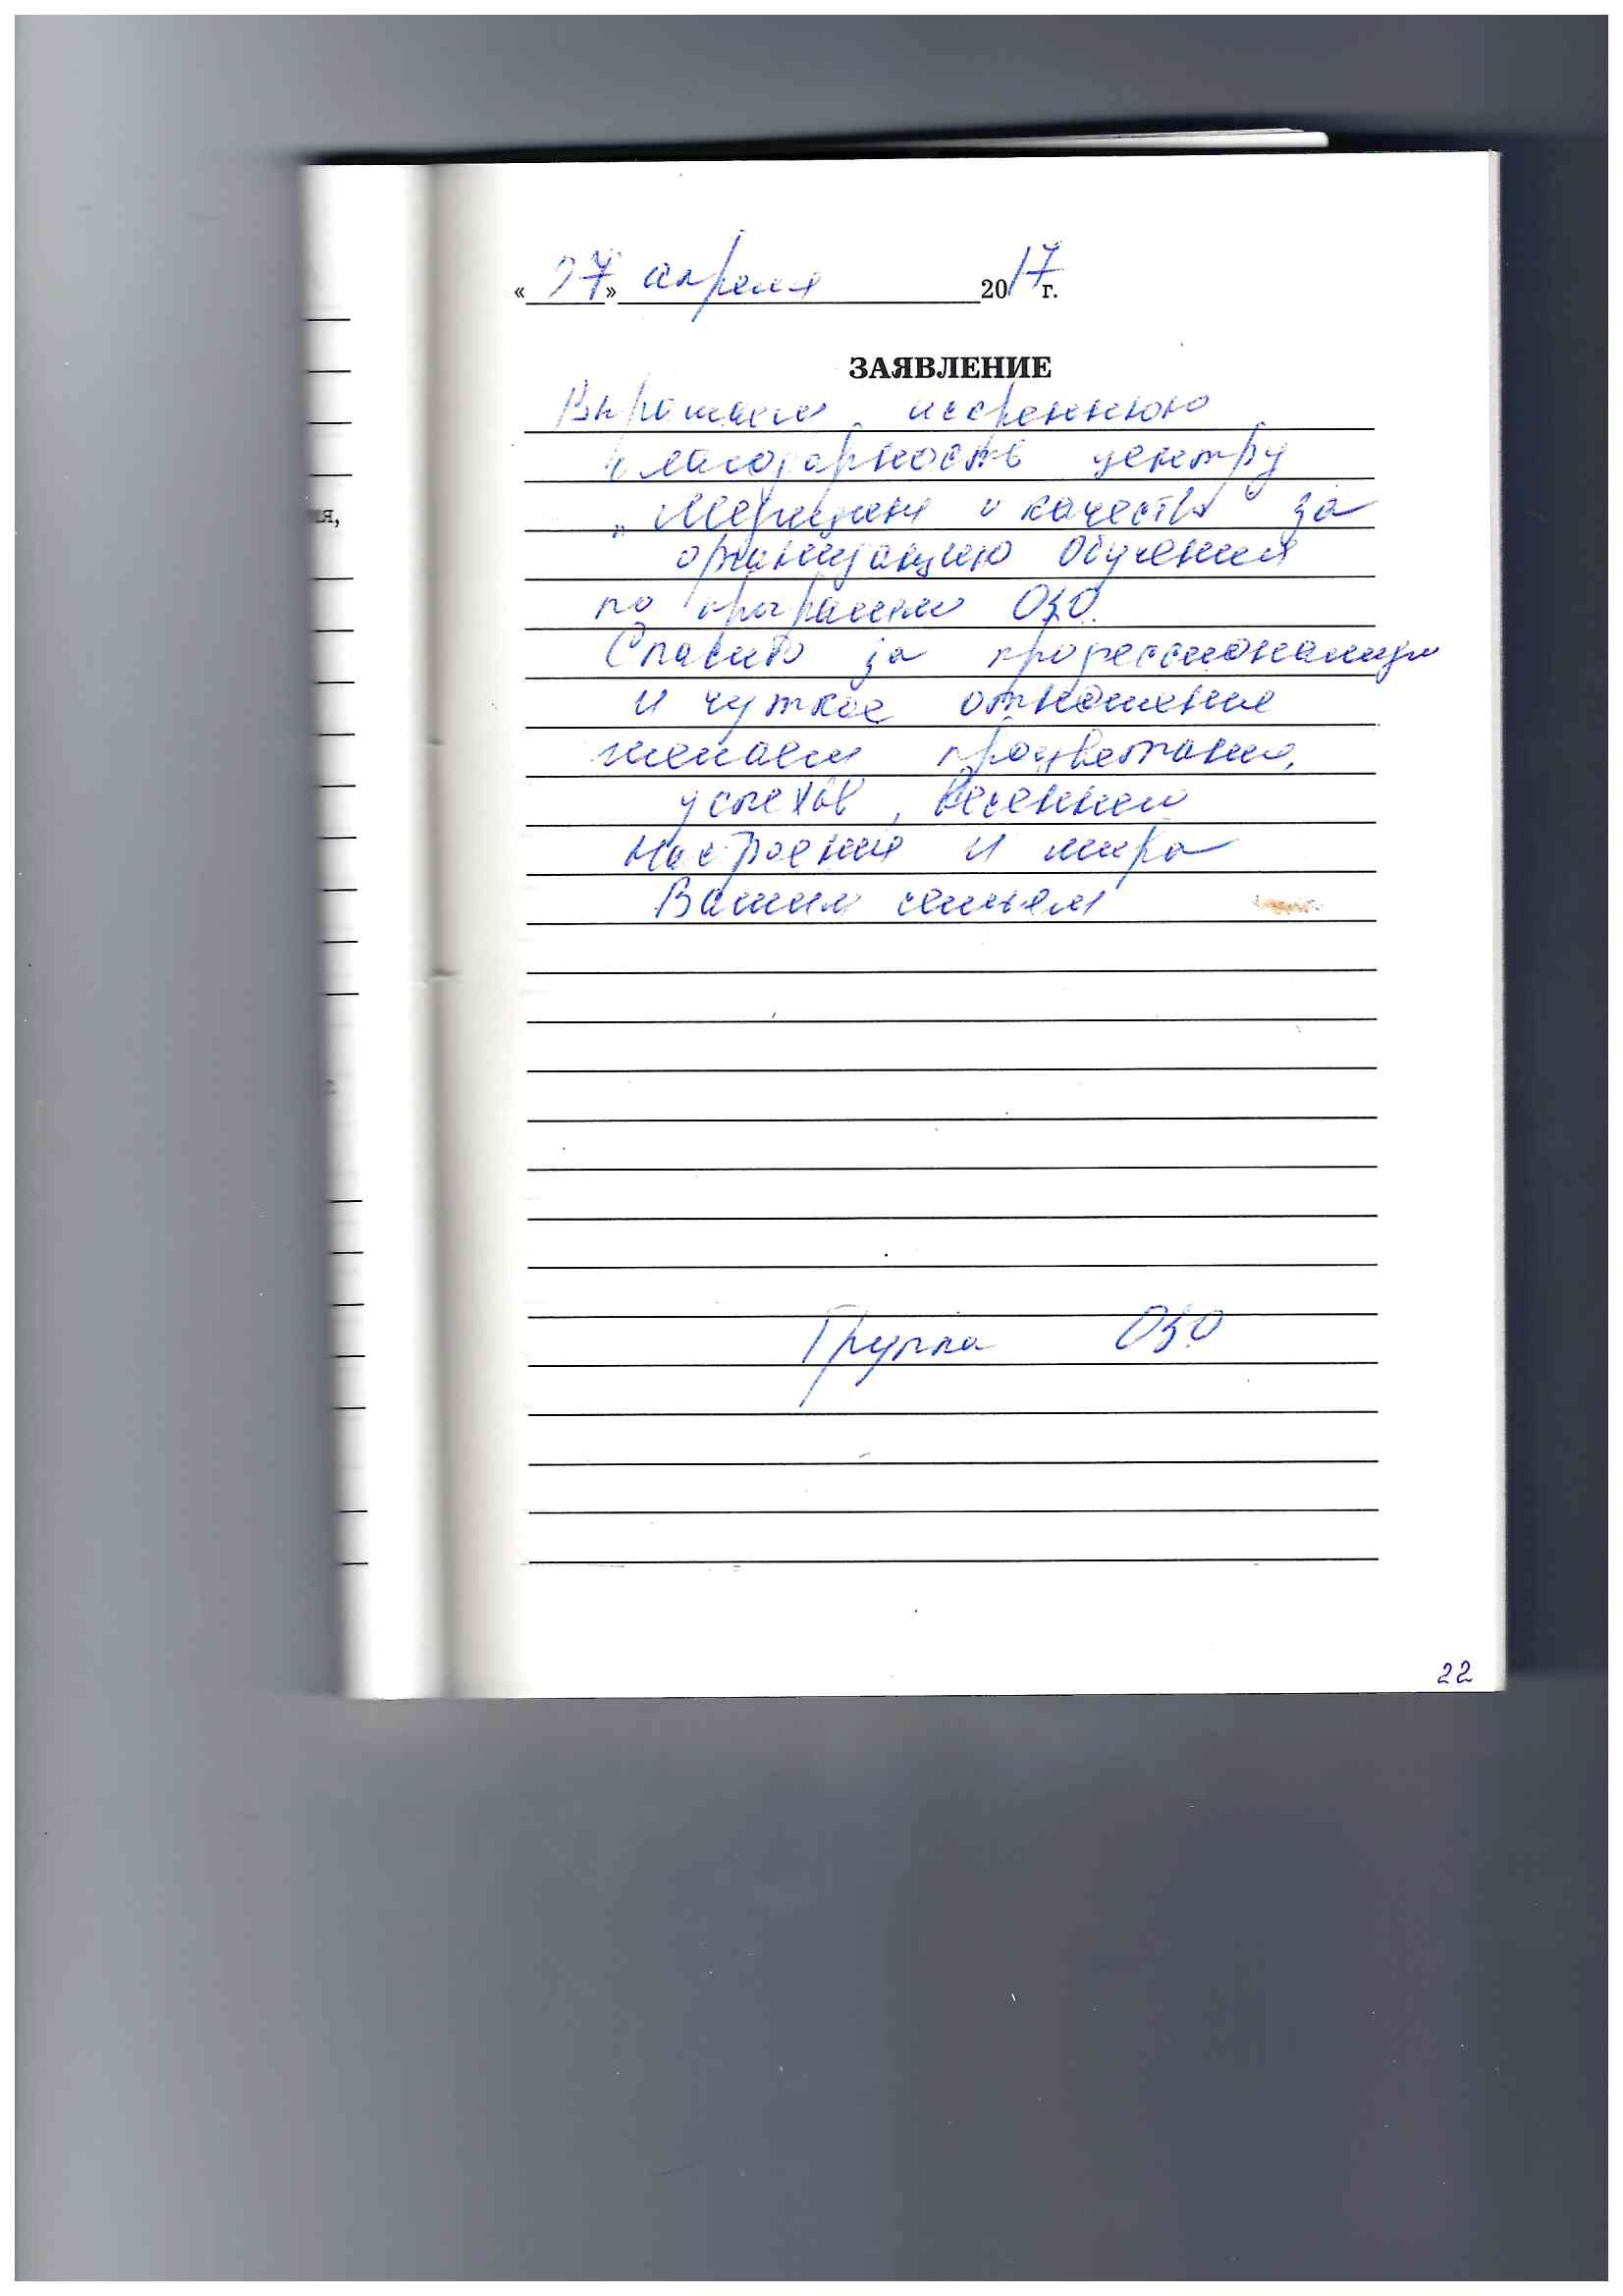 «27» апреля 2017 г.
ЗАЯВЛЕНИЕ
Выражаем искреннюю
благодарность центру
„Медицина и качество" за
организацию обучения
по программе ОЗО.
Спасибо за профессионализм
и чуткое отношение
желаем процветания,
успехов, весеннего
настроения и мира
Вашим семьям
Группа ОЗО
22
ия,